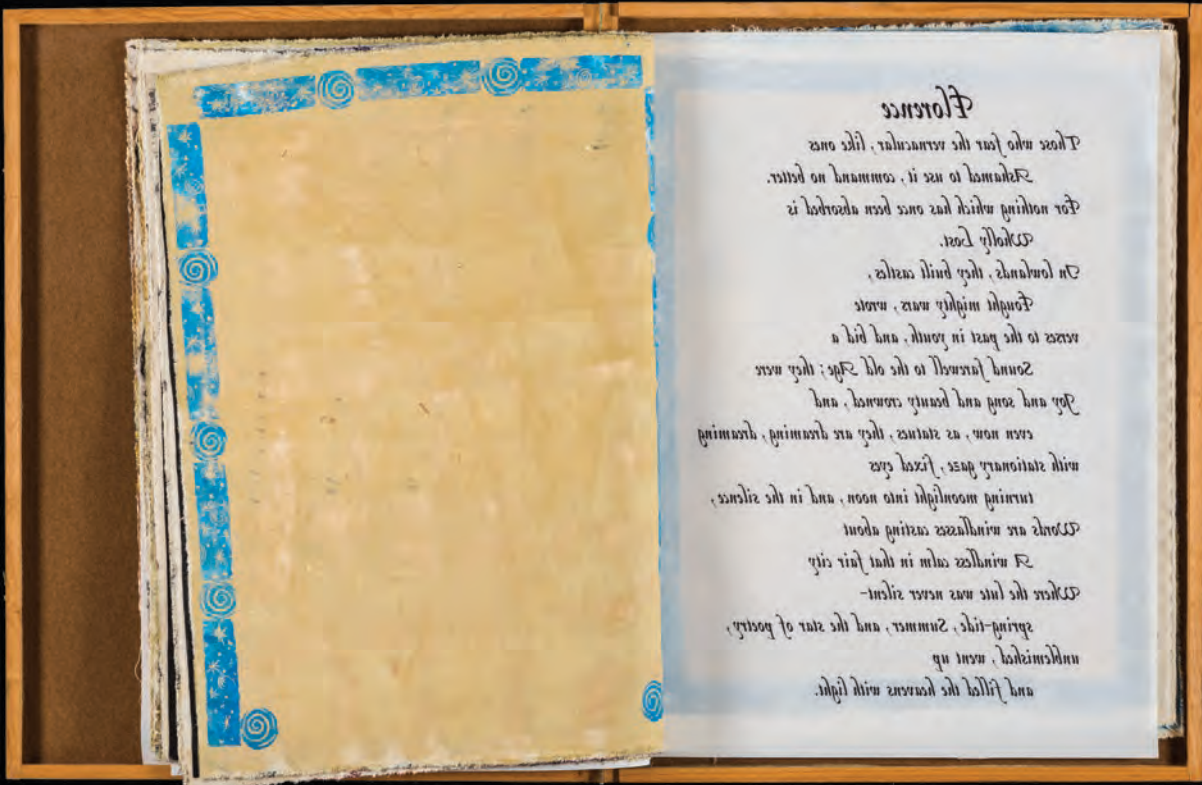 Florence
Those who fear the vernacular, like ones
Ashamed to use it, command no better.
For nothing which has once been absorbed is
Wholly Lost.
In lowlands, they built castles,
Fought mighty wars, wrote
verses to the past in youth, and bid a
Sound farewell to the old Age; they were
Joy and song and beauty crowned, and
even now, as statues, they are dreaming, dreaming
with stationary gaze, fixed eyes
turning moonlight into noon, and in the silence,
Words are windlasses casting about
A windless calm in that fair city
Where the lute was never silent-
spring-tide, Summer, and the star of poetry,
unblemished, went up
and filled the heavens with light.